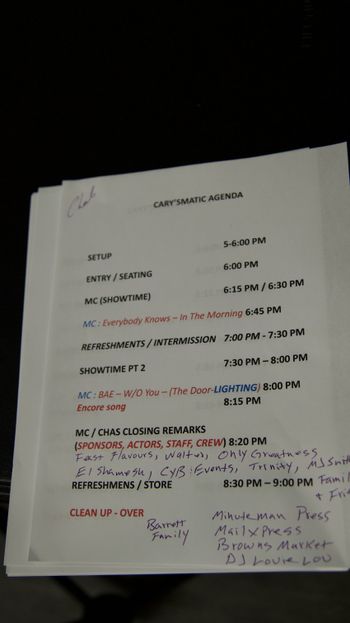 Chas
CARY'SMATIC AGENDA
SETUP 5-6:00 PM
ENTRY / SEATING 6:00 PM
MC (SHOWTIME) 6:15 PM / 6:30 PM
MC : Everybody Knows – In The Morning 6:45 PM
REFRESHMENTS / INTERMISSION 7:00 PM - 7:30 PM
SHOWTIME PT 2 7:30 PM – 8:00 PM
MC : BAE – W/O You – (The Door-LIGHTING) 8:00 PM
Encore song 8:15 PM
MC / CHAS CLOSING REMARKS
(SPONSORS, ACTORS, STAFF, CREW) 8:20 PM
Fast Flavours, Walter, Only Greatness
El Shamesh, CyB Events, Trinity, MJ Smith
REFRESHMENS / STORE 8:30 PM – 9:00 PM Famil
+ Frie
CLEAN UP - OVER
Barrett Family
Minuteman Press
MailxPress
Browns Market
DJ Louie Lou